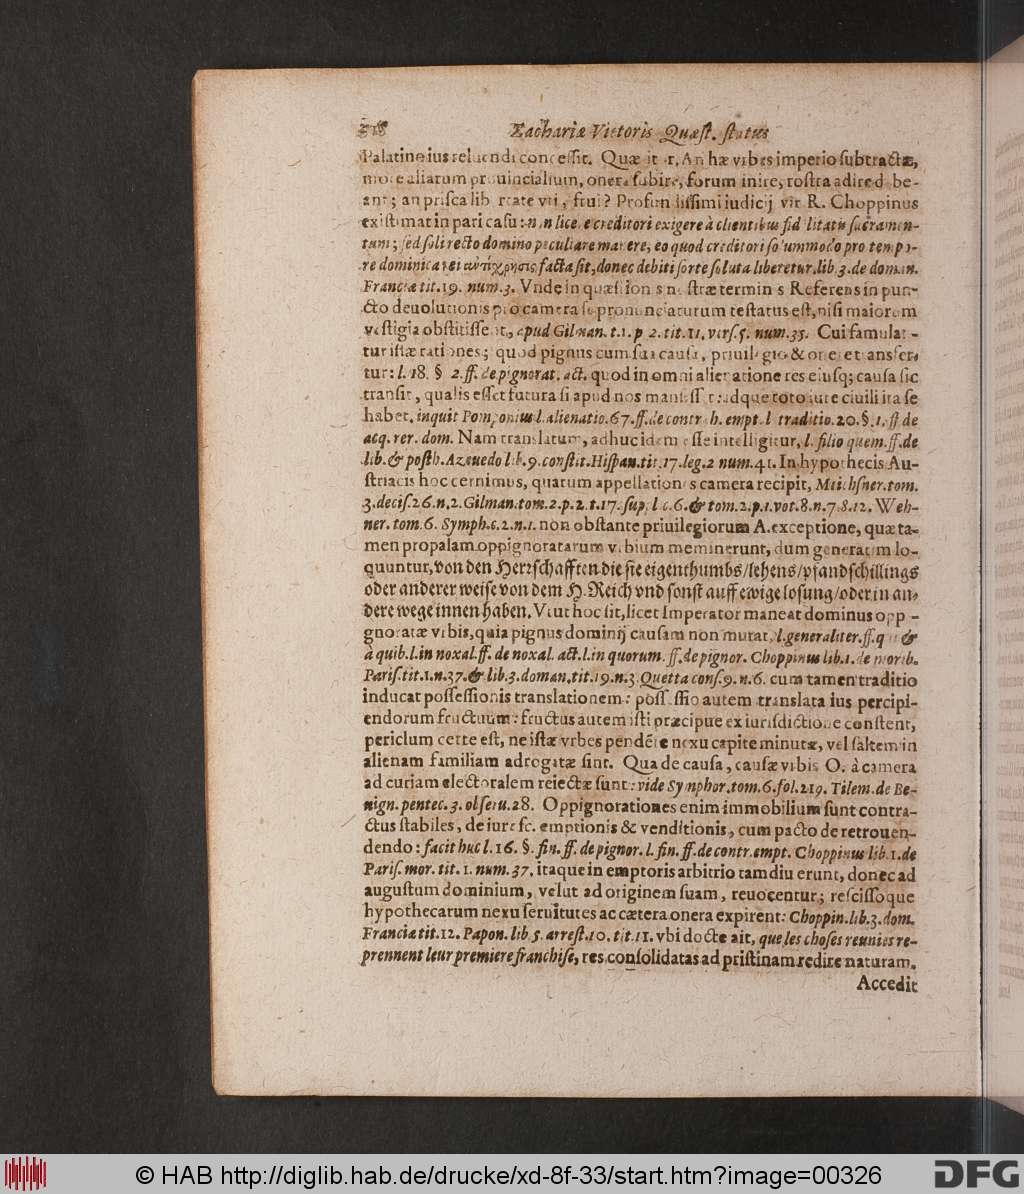 318 Zachariæ Victoris Quæst. status
Palatino ius reluendi concessit. Quæritur, An hæ vrbes imperio subtractæ,
more aliarum prouincialium, onera subire, forum inire, rostra adire debe-
ant; an prisca libertate vti, frui? Profundissimi iudicij vir R. Choppinus
existimat in pari casu: non licere creditori exigere à clientibus fidelitatis sacramen-
tum; sed soli recto domino peculiare manere, eo quod creditori so'ummodo pro tempo-
re dominica rei ἀντίχρησις facta sit, donec debiti sorte soluta liberetur. lib. 3. de doman.
Franciæ tit. 19. num. 3. Vnde in quæstionis nostræ terminis Referens in pun-
cto deuolutionis pro camera se pronunciaturum testatus est, nisi maiorum
vestigia obstitissent, apud Gilman. t. 1. p 2. tit. 11. vers. 5. num. 35. Cui famulan-
tur istæ rationes; quod pignus cum sua causa, priuilegio & onere transfera-
tur: l. 18. § 2. ff. de pignorat. act. quod in omni alienatione res eiusq; causa sic
transit, qualis esset futura si apud nos mansisset: idque toto iure ciuili ita se
habet, inquit Pomponius l. alienatio. 67. ff. de contrah. empt. l. traditio. 20. §. 1. ff de
acq. rer. dom. Nam translatum, adhuc idem esse intelligitur, l. filio quem. ff. de
lib. & posth. Azeuedo lib. 9. constit. Hispan. tit. 17. leg. 2 num. 41. In hypothecis Au-
striacis hoc cernimus, quarum appellationes camera recipit, Meichsner. tom.
3. decis. 26. n. 2. Gilman. tom. 2. p. 2. t. 17. sup. l. c. 6. & tom. 2. p. 1. vot. 8. n. 7. 8. 12. Weh-
ner. tom. 6. Symph. c. 2. n. 1. non obstante priuilegiorum A. exceptione, quæ ta-
men propalam oppignoratarum vrbium meminerunt, dum generatim lo-
quuntur, von den Herrschafften die sie eigenthumbs/lehens/pfandschillings
oder anderer weise von dem H. Reich vnd sonst auff ewige losung/oder in an-
dere wege innen haben. Vtut hoc sit, licet Imperator maneat dominus opp-
gnoratæ vrbis, quia pignus dominij causam non mutat, l. generaliter. ff. qui &
à quib. l. in noxal. ff. de noxal. act. l. in quorum. ff. de pignor. Choppinus lib. 1. de morib.
Paris. tit. 1. n. 37. & lib. 3. doman. tit. 19. n. 3. Quetta cons. 9. n. 6. cum tamen traditio
inducat possessionis translationem: possessio autem translata ius percipi-
endorum fructuum: fructus autem isti præcipue ex iurisdictione constent,
periclum certe est, ne istæ vrbes pendēte nexu capite minutæ, vel saltem in
alienam familiam adrogatæ sint. Qua de causa, causæ vrbis O. à camera
ad curiam electoralem reiectæ sunt: vide Symphor. tom. 6. fol. 219. Tilem. de Be-
nign. pentec. 3. obseru. 28. Oppignorationes enim immobilium sunt contra-
ctus stabiles, de iure sc. emptionis & venditionis, cum pacto de retrouen-
dendo: facit huc l. 16. §. fin. ff. de pignor. l. fin. ff. de contr. empt. Choppinus lib. 1. de
Paris. mor. tit. 1. num. 37. itaque in emptoris arbitrio tamdiu erunt, donec ad
augustum dominium, velut ad originem suam, reuocentur; rescissoque
hypothecarum nexu seruitutes ac cætera onera expirent: Choppin. lib. 3. dom.
Franciæ tit. 12. Papon. lib. 5. arrest. 10. tit. 11. vbi docte ait, que les choses reunies re-
prennent leur premiere franchise, res consolidatas ad pristinam redire naturam.
Accedit
© HAB http://diglib.hab.de/drucke/xd-8f-33/start.htm?image=00326
DFG